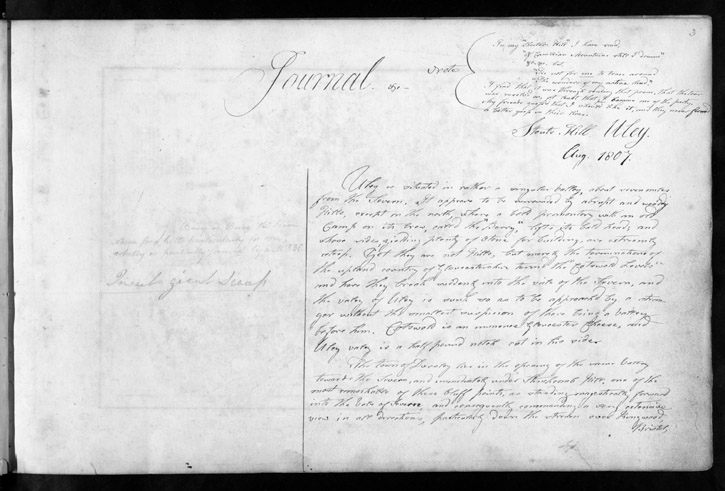 3
Journal. &c—
Note
In my "Stouts Hill" I have said,
"Of Cambrian Mountains still I dream"
&c. &c. but.
"'Tis not for me to roam around
I find that it was through reading that poem, that the tour
was marked out, and that I became one of the party.
a better guess in their lives.
Stouts Hill Uley.
Aug. 1807.
Uley is situated in rather a singular valley, about seven miles
from the Severn. It appears to be surrounded by abrupt and woody
Hills, except on the north, where a bold promontory with an old
Camp on its brow, called the "Bury," lifts its bald head, and
whose sides, yielding plenty of stone for building, are extremely
steep. Yet they are not Hills, but merely the terminations of
the upland country of Gloucestershire termed the "Cotswold Levels"
and here they break suddenly into the vale of the Severn, and
the valley of Uley is sunk so as to be approached by a stran-
ger without the smallest suspicion of there being a valley
before him. Cotswold is an immense Gloucester Cheese, and
Uley valley is a half pound notch cut in its side.
The town of Dursley lies in the opening of the same valley
towards the Severn, and immediately under Stinchcomb Hill, one of the
most remarkable of these bluff points, as standing majestically forward
into the Vale of Severn, and consequently commanding a very extensive
view in all directions, particularly down the stream over Kingroad
Bristol,